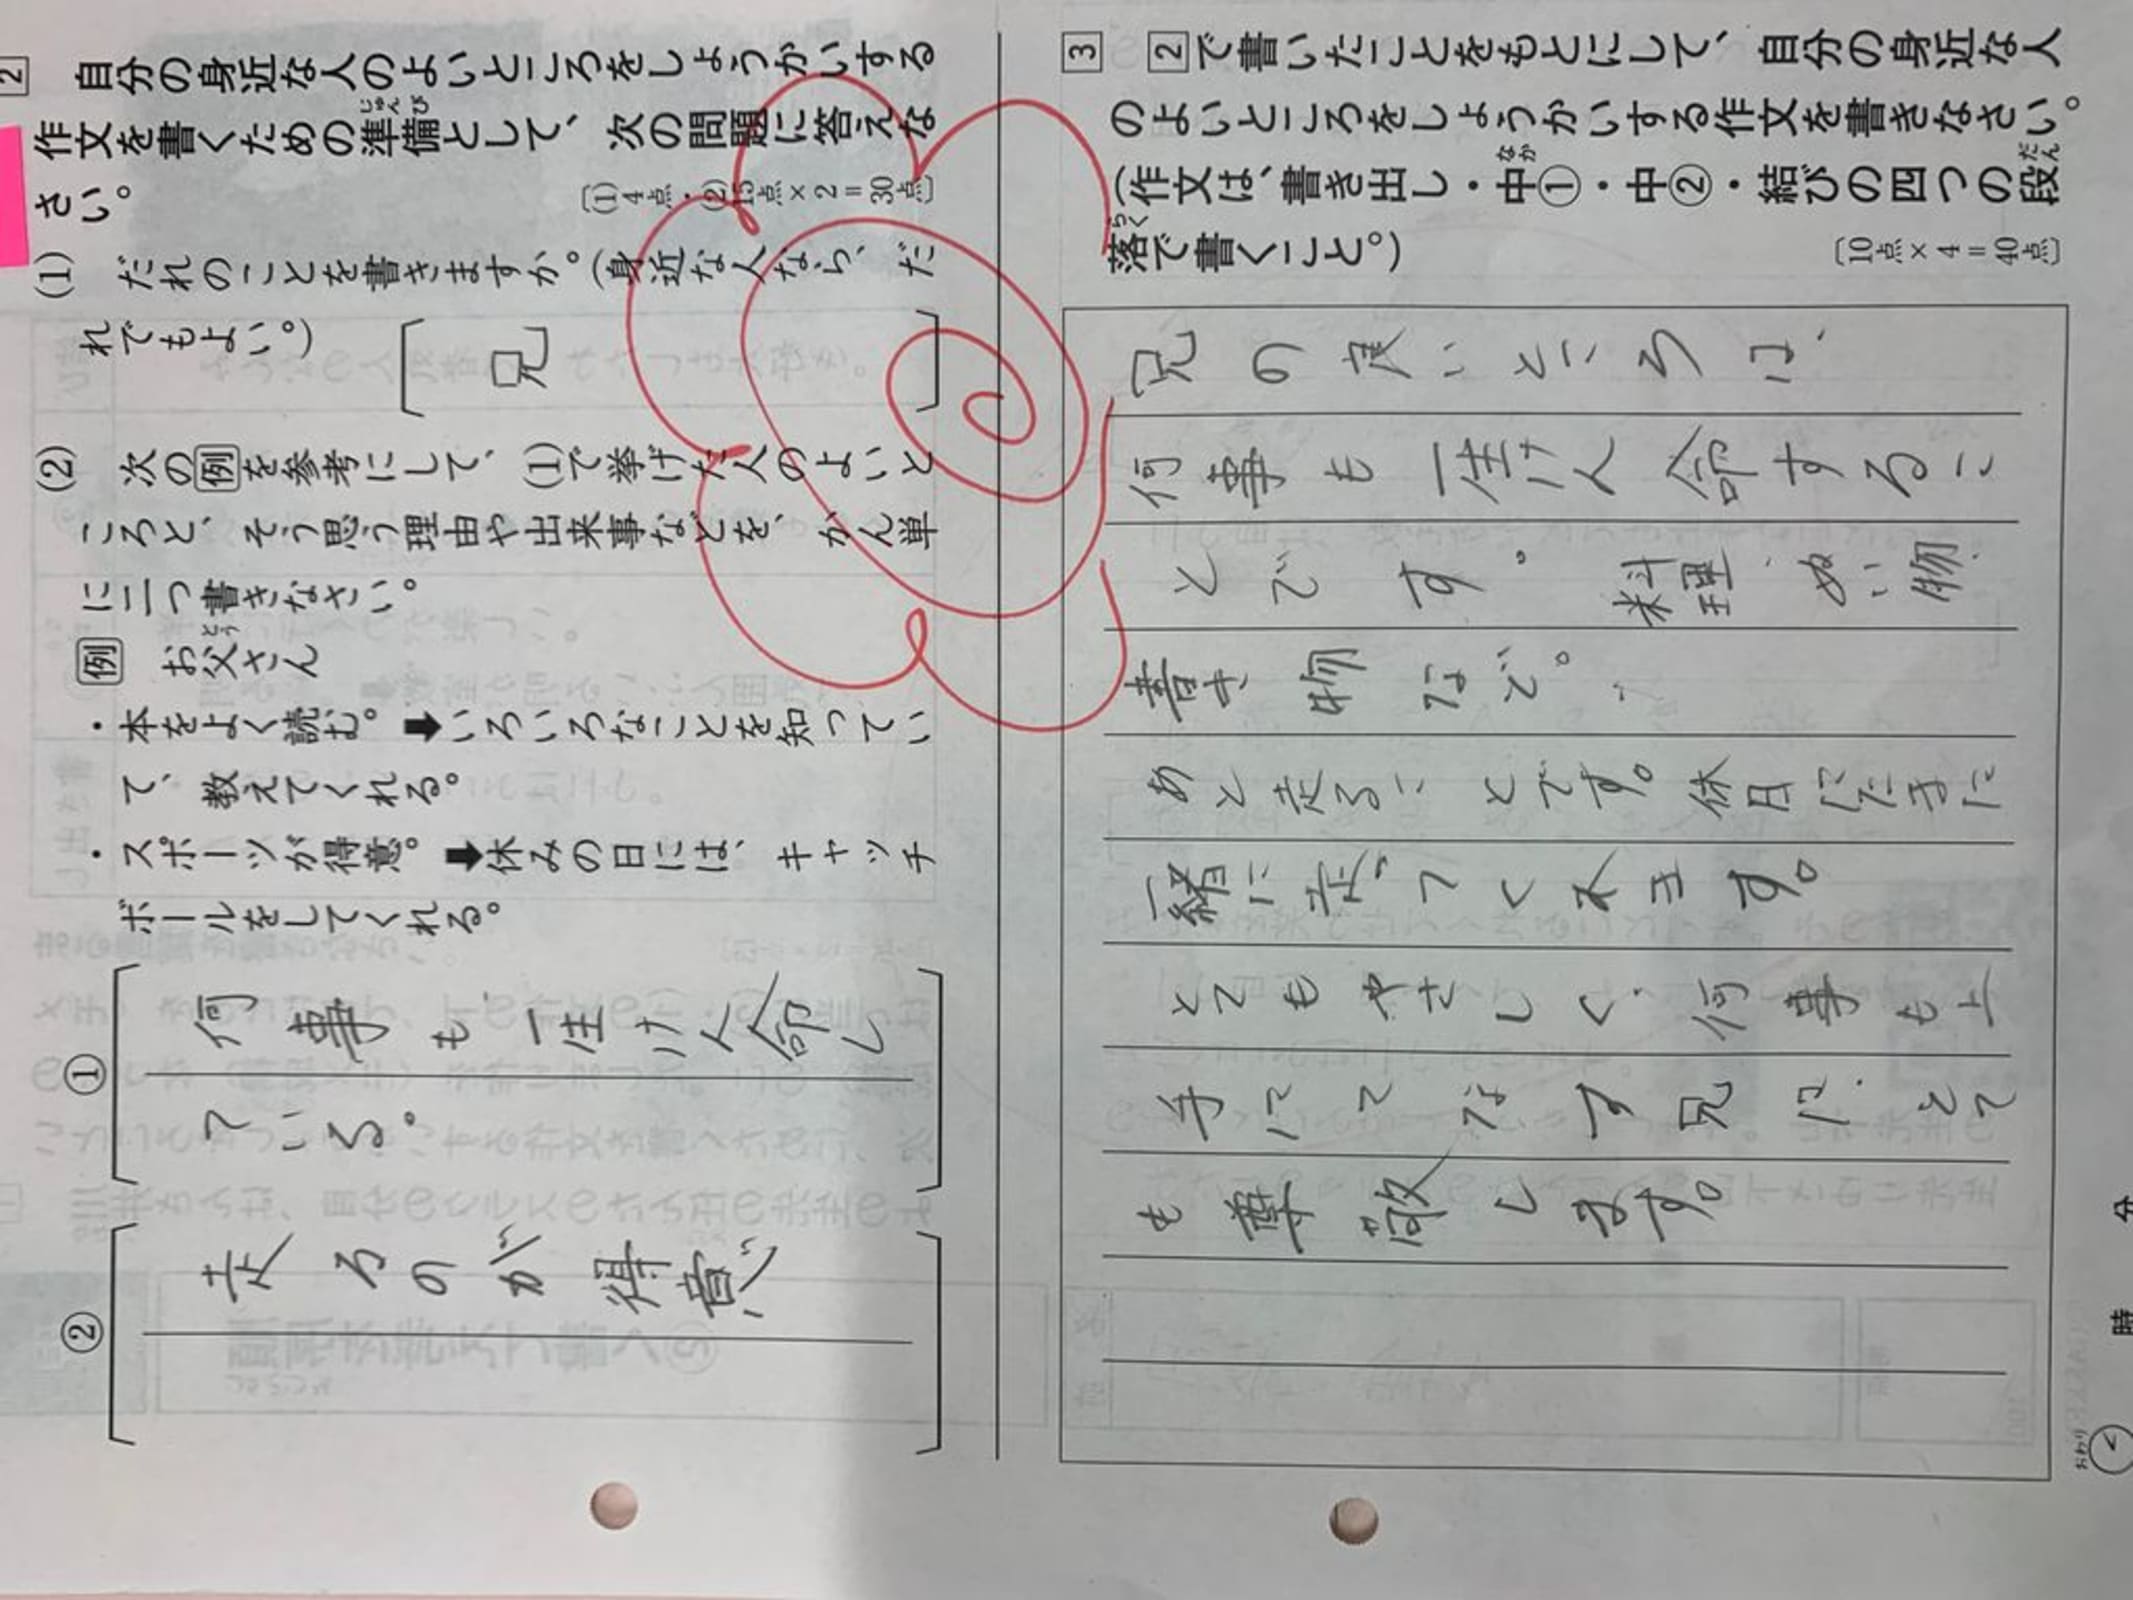 2 自分の身近な人のよいところをしょうかいする
作文を書くための準備として、次の問題に答えな
じゅんび
さい。
〔(1)4点・(2)15点×2=30点〕
(1) だれのことを書きますか。(身近な人なら、だ
れでもよい。)
兄
(2) 次の例を参考にして、(1)で挙げた人のよいと
ころと、そう思う理由や出来事などを、かん単
に二つ書きなさい。
例 お父さん
とう
・本をよく読む。➡いろいろなことを知ってい
て、教えてくれる。
・スポーツが得意。➡休みの日には、キャッチ
ボールをしてくれる。
① 何事も一生けん命し
ている。
② 走るのが得意
3 2で書いたことをもとにして、自分の身近な人
のよいところをしょうかいする作文を書きなさい。
(作文は、書き出し・中①・中②・結びの四つの段
なか
だん
落で書くこと。)
らく
〔10点×4=40点〕
兄の良いところは、
何事も一生けん命するこ
とです。料理、ぬい物、
書き物など。
あと走ることです。休日にたまに
一緒に走ってくれます。
とてもやさしく、何事も上
手にこなす兄は、とて
も尊敬します。
時
分